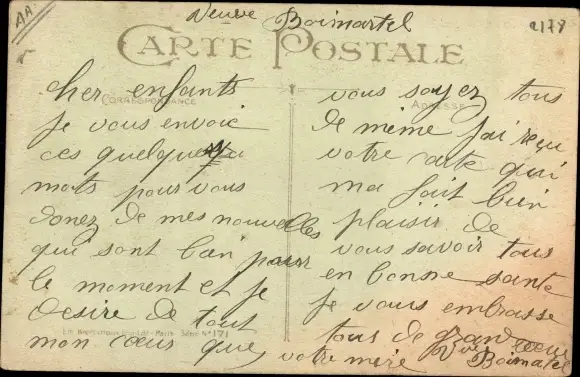 AA
Veuve Boimartel
2178
CARTE POSTALE
CORRESPONDANCE
ADRESSE
cher enfants
je vous envoie
ces quelque
mots pour vous
donez de mes nouvelles
qui sont bien pour
le moment et je
desire de tout
mon cœur que
vous soyez tous
de même j'ai reçu
votre carte qui
ma fait bien
plaisir de
vous savoir tous
en bonne sante
je vous embrasse
tous de grand cœur
votre mère Vve Boimartel
PARIS Série N° 171